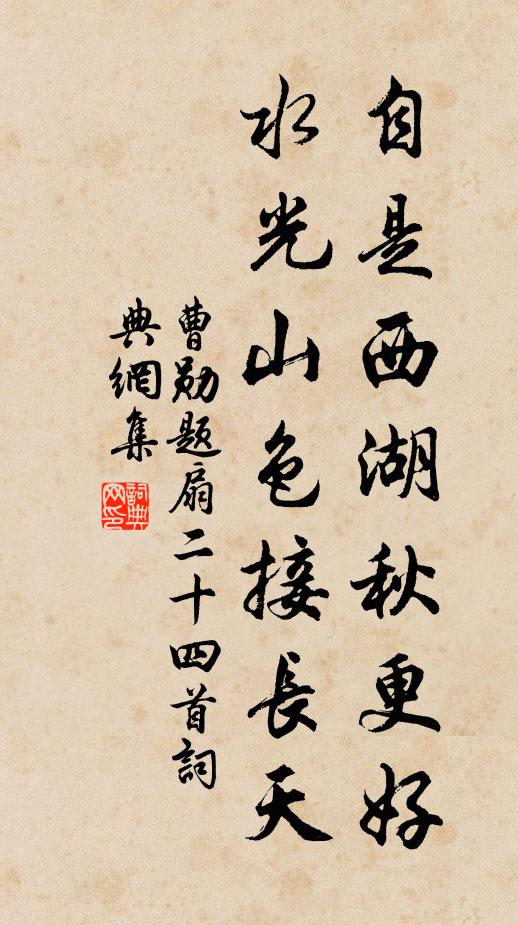 自是西湖秋更好
水光山色接長天
曹勛題扇二十四首詞
典網集
詞典
网印